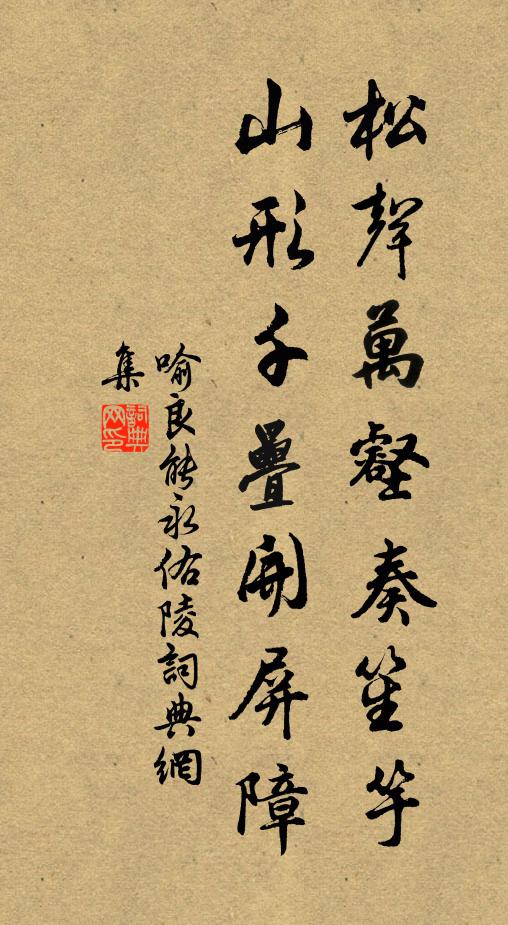 松聲萬壑奏笙竽
山形千疊開屏障
喻良能永佑陵詞典網
集
詞典网印